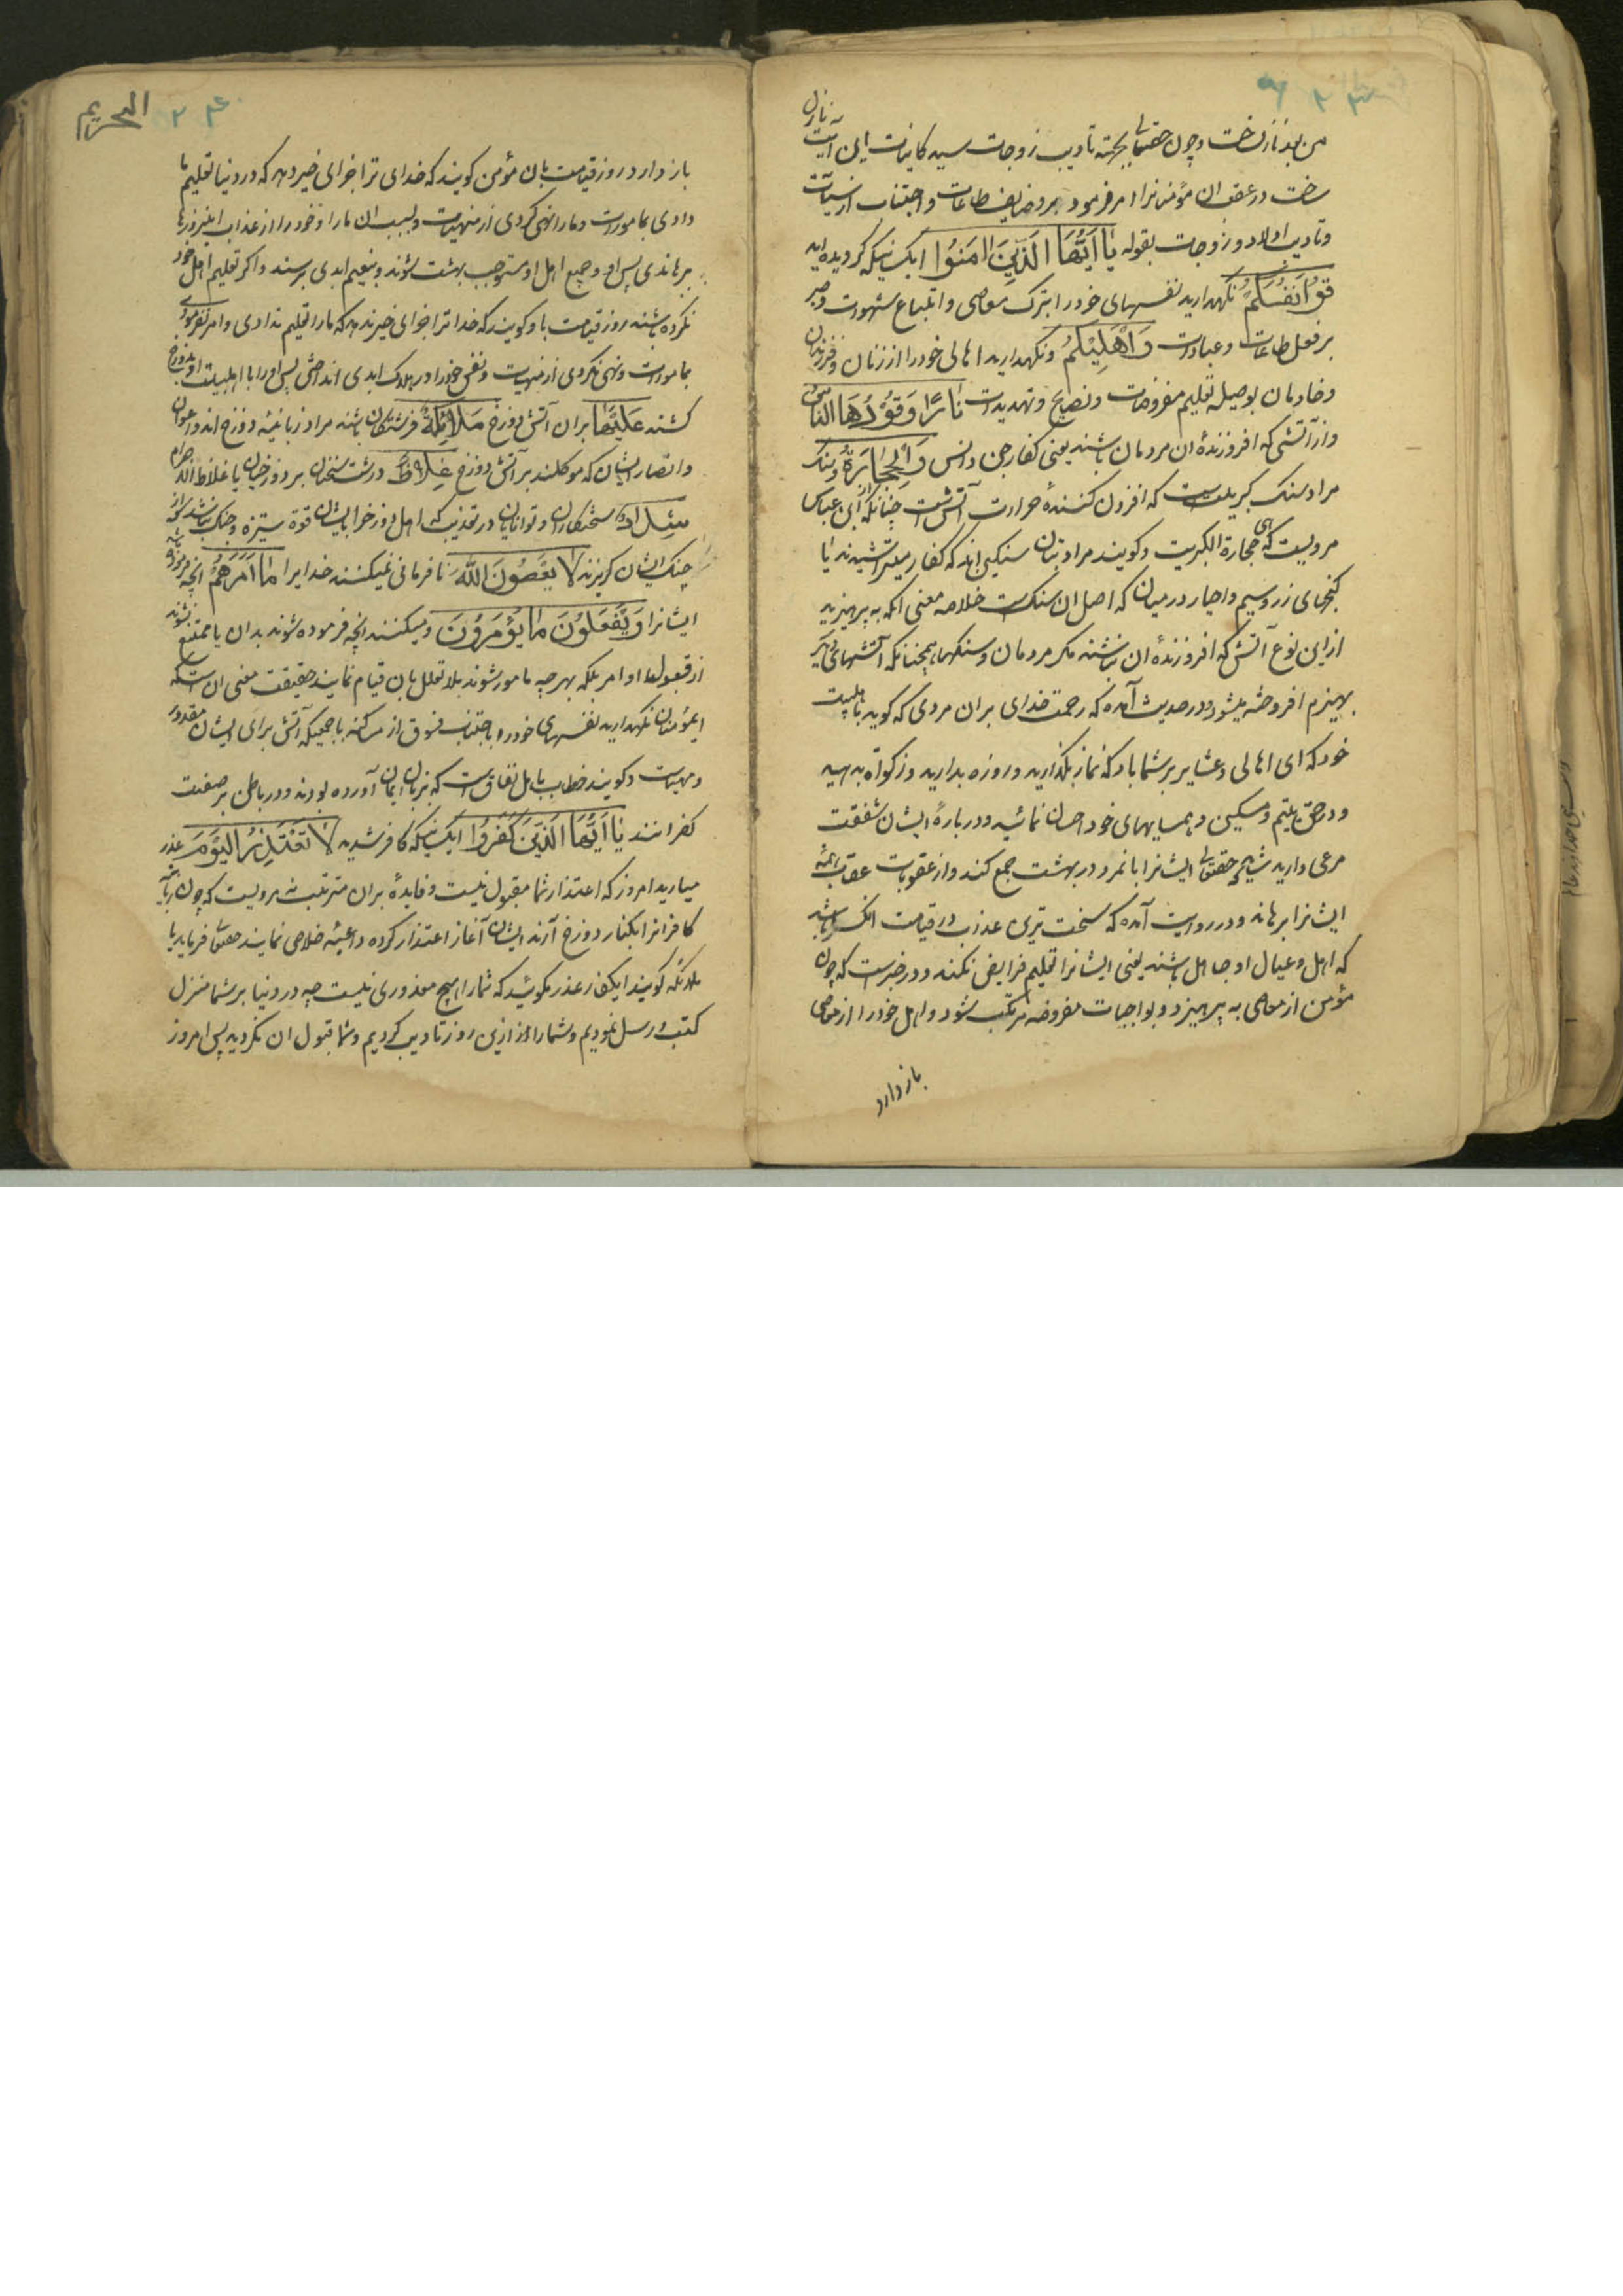 من بعد نازل ساخت و چون حقتعالی بجهته تادیب زوجات سید کاینات این آیت نازل
ساخت در عقب ان مؤمنانرا امر فرمود بر وظایف طاعات و اجتناب از سیئات
و تادیب اولاد و زوجات بقوله یا ایها الذین امنوا ای کسانیکه گرویده اید
قوا انفسکم نگهدارید نفسهای خود را بترک معاصی و اتباع شهوات و صبر
بر فعل طاعات و عبادات و اهلیکم و نگهدارید اهالی خود را از زنان و فرزندان
و خادمان بوصیله تعلیم مفروضات و نصایح و تهدیدات نارا وقودها الناس
و از آتشی که افروزندهٔ ان مردمان باشند یعنی کفار جن و انس و الحجارة و سنک
مراد سنک کبریتست که افزون کنندهٔ حرارت آتش است چنانکه از ابن عباس
مرویست که هی حجارة الکبریت و کویند مراد بتان سنکین اند که کفار میتراشیدند یا
کنجهای زر و سیم و احجار در میان که اصل ان سنکست خلاصه معنی انکه به پرهیزید
از این نوع آتش که افروزندهٔ ان نباشند مکر مردمان و سنکها همچنانکه آتشهای دیکر
بهیزم افروخته میشود و در حدیث آمده که رحمت خدای بران مردی که کوید باهلبیت
خود که ای اهالی و عشایر بر شما باد که نماز بکذارید و روزه بدارید و زکواة بدهید
و در حق یتیم و مسکین و همسایهای خود احسان نمائید و در بارهٔ ایشان شفقت
مرعی دارید شاید که حقتعالی ایشانرا با نمرد در بهشت جمع کند و از عقوبات عقبات همه
ایشانرا برهاند و در روایت آمده که سخت ترین عذاب در قیامت انکس را باشد
که اهل و عیال او جاهل باشند یعنی ایشانرا تعلیم فرایض نکند و در خبرست که چون
مؤمن از معاصی به پرهیزد و بواجبات مفروضه مرتکب شود و اهل خود را از معاصی
باز دارد
التحریم
۲۴۰
باز دارد روز قیامت بان مؤمن کویند که خدای ترا جزای خیر دهد که در دنیا تعلیم ما
دادی بمامورات و ما را نهی کردی از منهیات و بسبب ان ما را و خود را از عذاب اینروز
برهاندی پس او و جمیع اهل او مستوجب بهشت شوند و بنعیم ابدی برسند و اکر تعلیم اهل خود
نکرده باشند روز قیامت باو کویند که خدا ترا جزای خیر ندهد که ما را تعلیم ندادی و امر نفرمودی
بمامورات و نهی نکردی از منهیات و نفس خود را در هلاک ابدی انداختی پس او را با اهلبیت او بدوزخ
کشند علیها بران آتش دوزخ ملائکة فرشتکان باشند مراد زبانیهٔ دوزخ اند و اعوان
و انصار ایشان که موکلند بر آتش دوزخ غلاظ درشت سخنان بر دوزخیان یا غلاظ الاجرام
شداد سختکاران و توانایان در تعذیب که اهل دوزخ را با ایشان قوة ستیزه و جنک نباشد
جنک ایشان کریزند لا یعصون الله نافرمانی نمیکنند خدایرا ما امرهم انچه فرموده باشد
ایشانرا و یفعلون ما یؤمرون و میکنند انچه فرموده شوند بدان یا ممتنع نشوند
از قبول اوامر بلکه بهرچه مامور شوند بلا تعلل بان قیام نمایند حقیقت معنی ان است که
ایمؤمنان نکهدارید نفسهای خود را باجتناب فسوق از مراکنه با جمعیکه آتش برای ایشان مقدر
و مهیاست و کویند خطاب باهل نفاق است که بزبان ایمان آورده بودند و در باطن بر صفت
کفر انند یا ایها الذین کفروا ای کسانیکه کافر شدید لا تعتذروا الیوم عذر
میارید امروز که اعتذار شما مقبول نیست و فایدهٔ بران مترتب نه مرویست که چون زبانیه
کافرانرا بکنار دوزخ آرند ایشان آغاز اعتذار کرده داعیهٔ خلاصی نمایند حقتعالی فرماید یا
ملائکه کویند ایکفار عذر مکوئید که شما را هیچ معذوری نیست چه در دنیا بر شما منزل
کتب و رسل نمودیم و شما را از این روز تادیب کردیم و شما قبول ان نکردید پس امروز